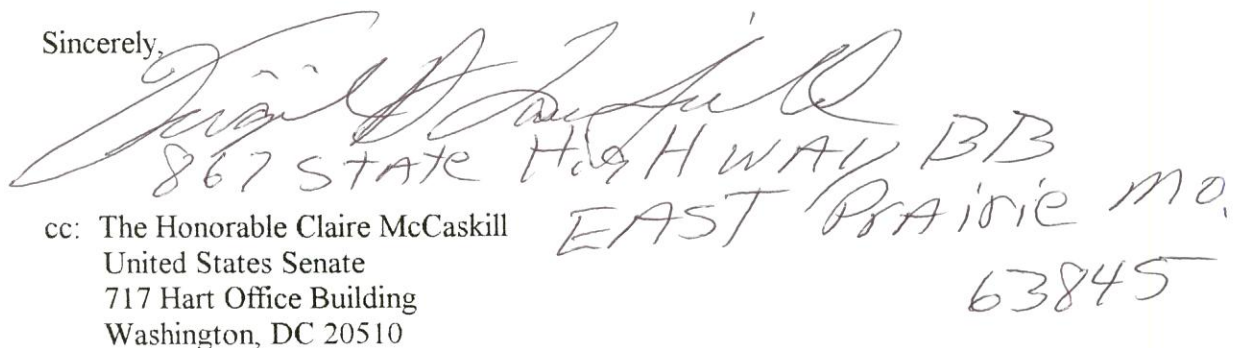 Sincerely,
867 STATE HigHWAY BB
EAST PrAirie MO.
63845
cc: The Honorable Claire McCaskill
United States Senate
717 Hart Office Building
Washington, DC 20510